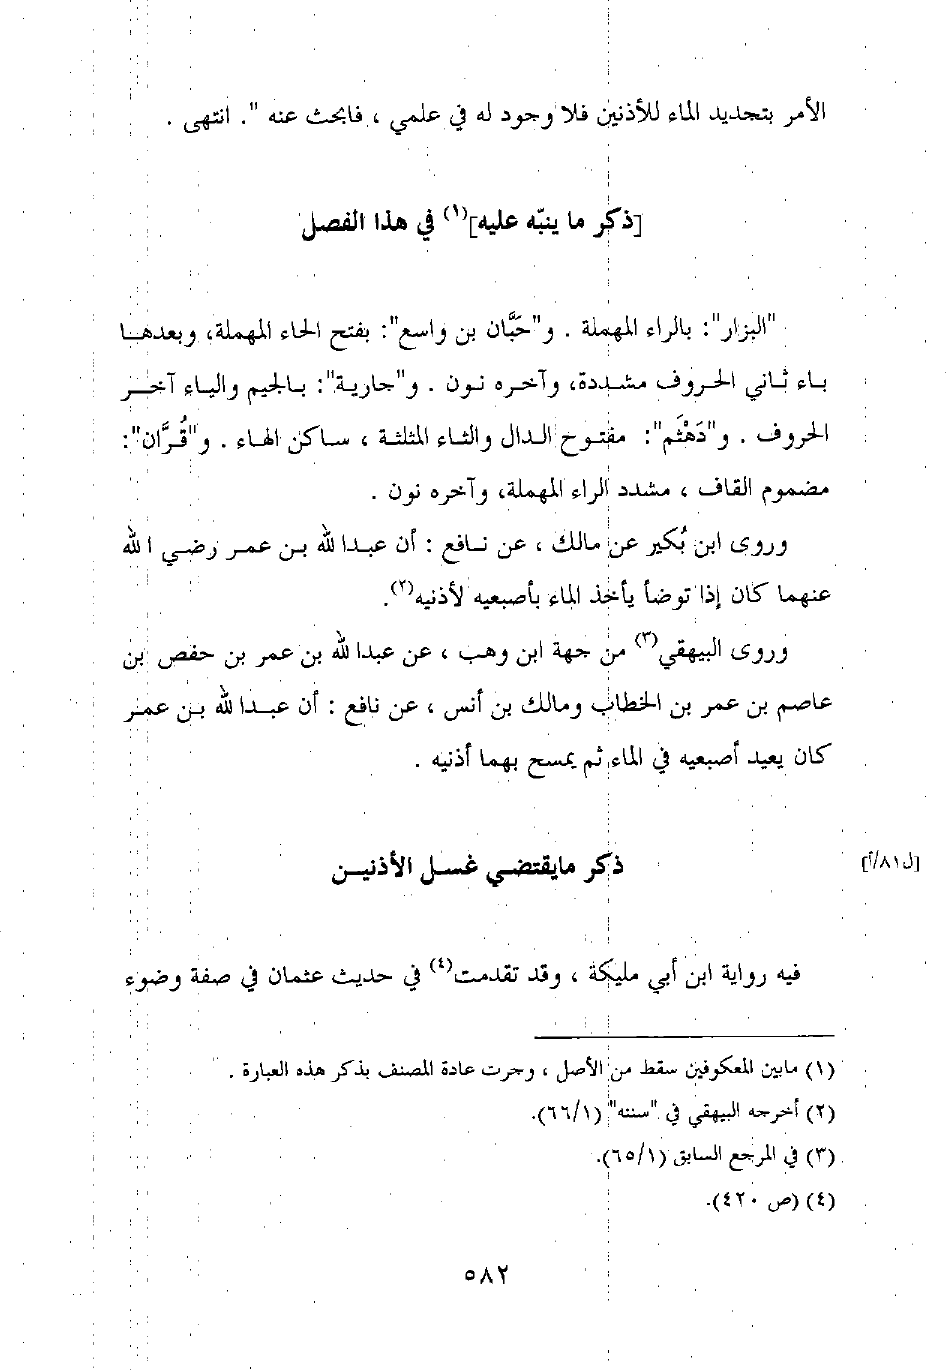 الأمر بتجديد الماء للأذنين فلا وجود له في علمي ، فابحث عنه ". انتهى .
[ذكر ما ينبّه عليه](١) في هذا الفصل
"البزار": بالراء المهملة . و"حَبَّان بن واسع": بفتح الحاء المهملة، وبعدهـا
بـاء ثـاني الحـروف مشـددة، وآخـره نـون . و"جاريـة": بـالجيم واليـاء آخـر
الحروف . و"دَهْثَم": مفتـوح الـدال والثـاء المثلثـة ، سـاكن الهـاء . و"قُـرَّان":
مضموم القاف ، مشدد الراء المهملة، وآخره نون .
وروى ابن بُكير عن مالك ، عن نـافع : أن عبـدا لله بـن عمـر رضـي ا لله
عنهما كان إذا توضأ يأخذ الماء بأصبعيه لأذنيه(٢).
وروى البيهقي(٣) من جهة ابن وهب ، عن عبدا لله بن عمر بن حفص بن
عاصم بن عمر بن الخطاب ومالك بن أنس ، عن نافع : أن عبـدا لله بـن عمـر
كان يعيد أصبعيه في الماء ثم يمسح بهما أذنيه .
ذكر مايقتضـي غسـل الأذنيـن
[ل٨١/أ]
فيه رواية ابن أبي مليكة ، وقد تقدمت(٤) في حديث عثمان في صفة وضوء
(١) مابين المعكوفين سقط من الأصل ، وجرت عادة المصنف بذكر هذه العبارة .
(٢) أخرجه البيهقي في "سننه" (٦٦/١).
(٣) في المرجع السابق (٦٥/١).
(٤) (ص ٤٢٠).
٥٨٢